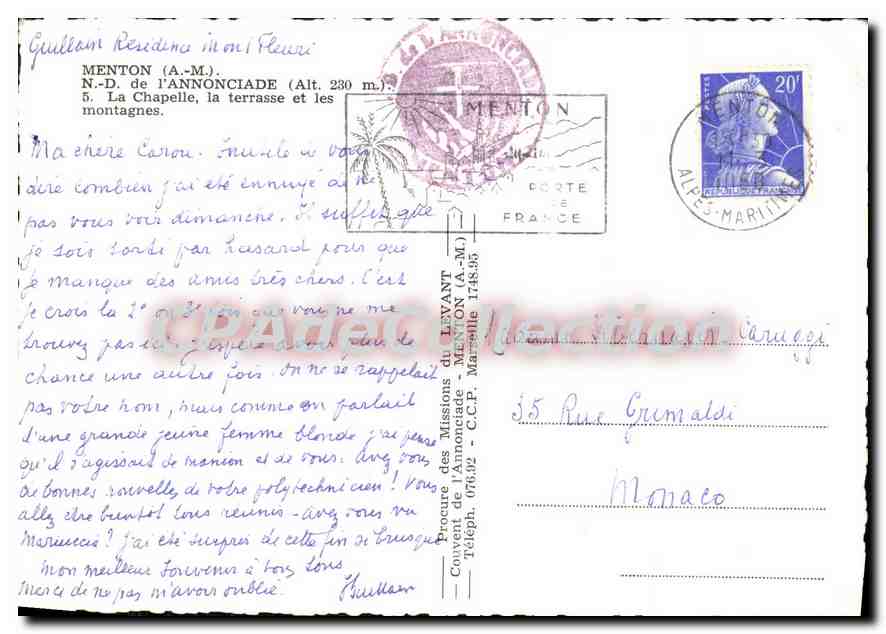 Guillain Résidence Mont Fleuri
MENTON (A.-M.).
N.-D. de l'ANNONCIADE (Alt. 230 m.).
5. La Chapelle, la terrasse et les
montagnes.
Ma chère Carou. Inutile de vous
dire combien j'ai été ennuyé de ne
pas vous voir dimanche. Il suffit que
je sois sorti par hasard pour que
je manque des amis très chers. C'est
je crois la 2e ou 3e fois que vous ne me
trouvez pas j'espère avoir plus de
chance une autre fois. On ne se rappelait
pas votre nom, mais comme on parlait
d'une grande jeune femme blonde j'ai pensé
qu'il s'agissait de manion et de vous. Avez vous
de bonnes nouvelles de votre polytechnicien! Vous
allez être bientôt tous réunis - avez vous vu
Mariuccia? J'ai été surpris de cette fin si brusque
Mon meilleur souvenir à tous
Merci de ne pas m'avoir oublié.
Guillain
D. de L'ANNONCIADE
MENTON
MENTON
PORTE
DE
FRANCE
POSTES
20F
REPUBLIQUE FRANCAISE
MENTON
ALPES-MARITIMES
Procure des Missions du LEVANT
Couvent de l'Annonciade - MENTON (A.-M.)
Téléph. 076.92 - C.C.P. Marseille 1748.95
Madame Caruggi
35 Rue Grimaldi
Monaco
CPAdeCollection